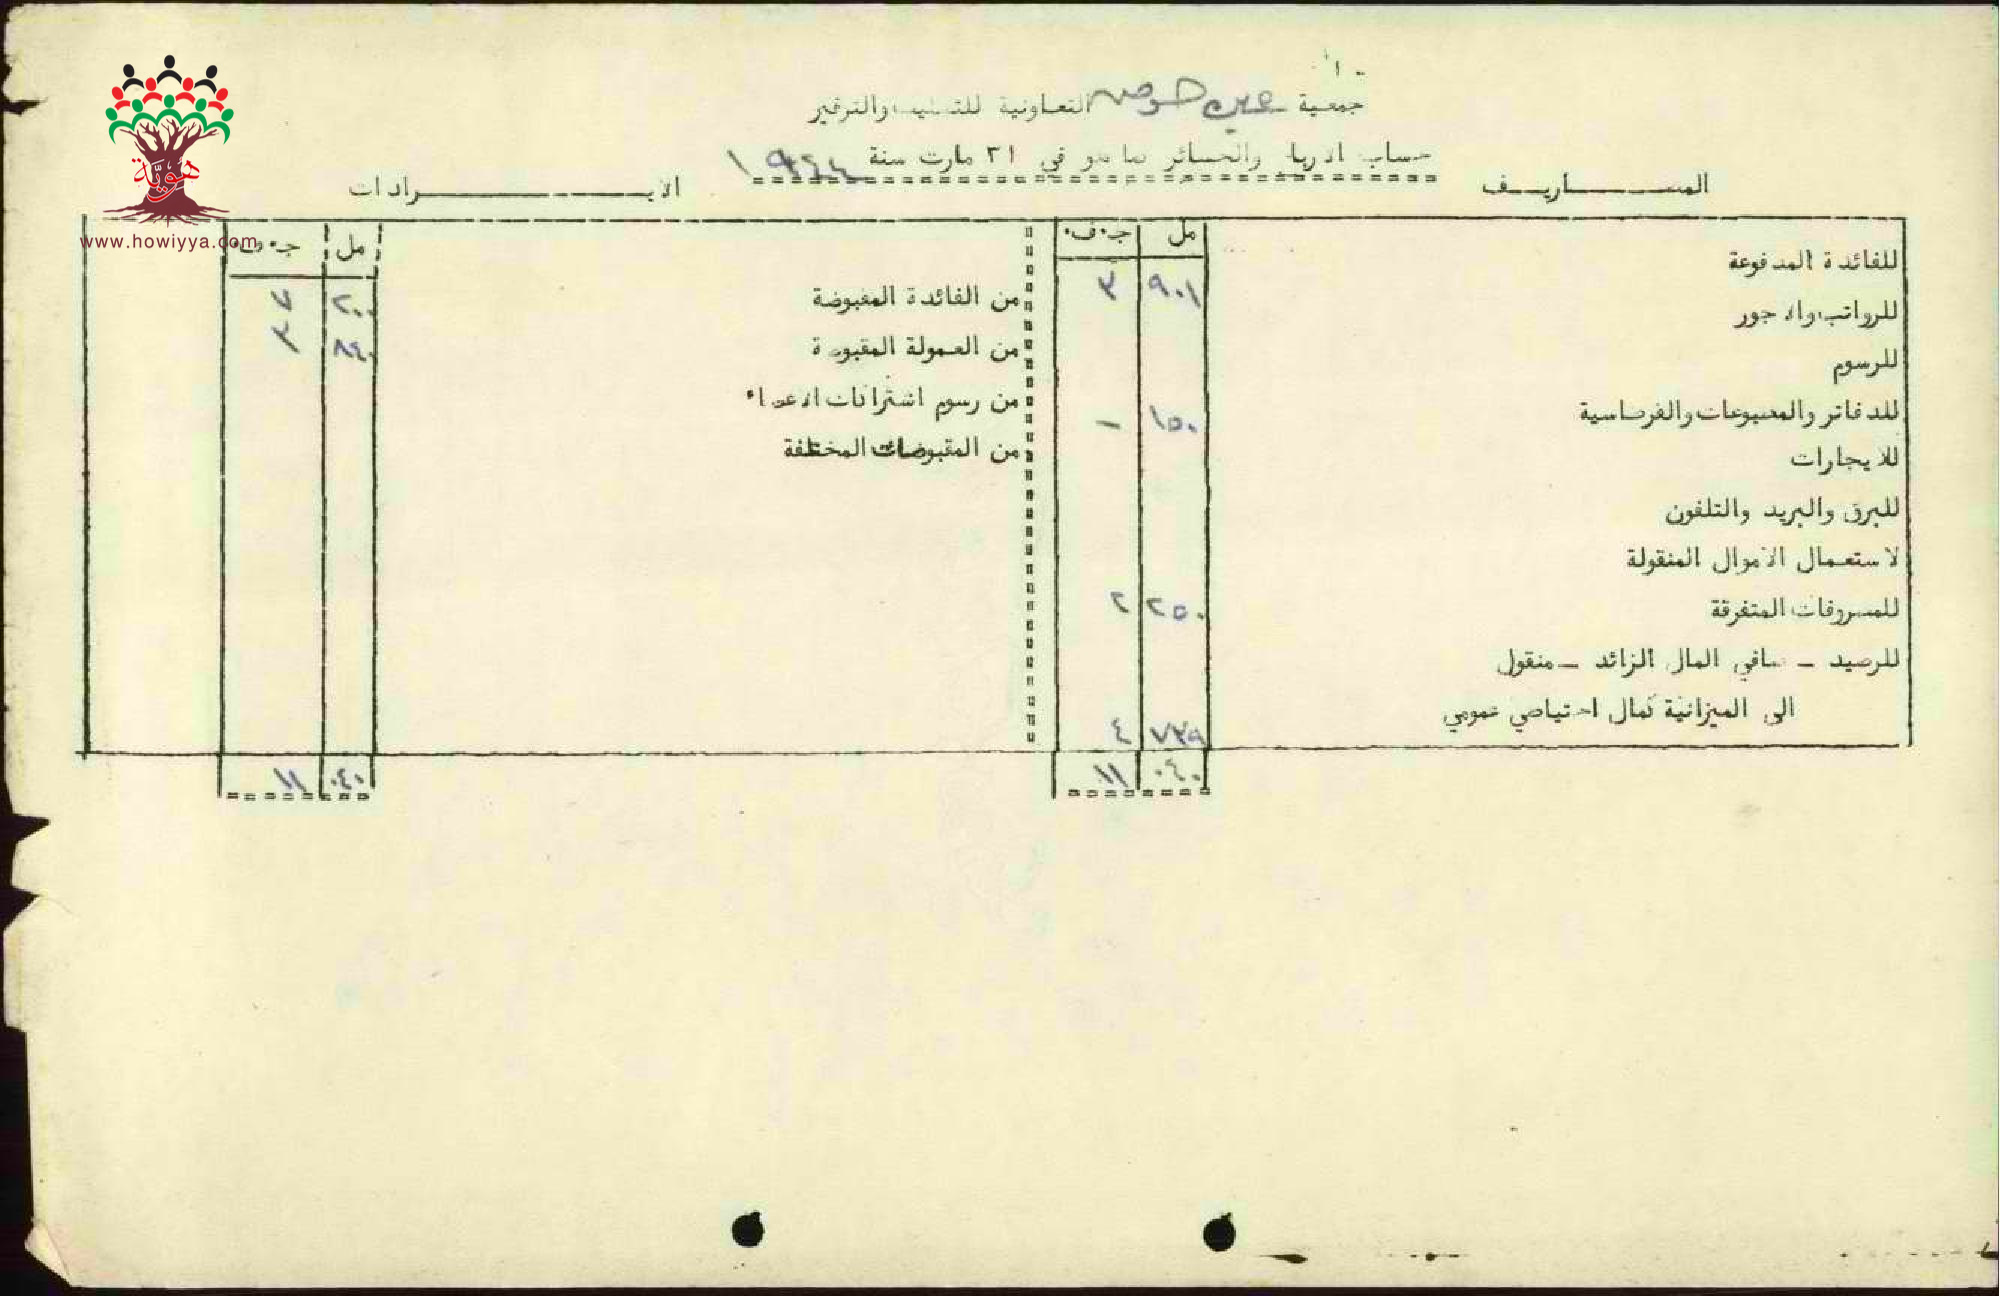 جمعية عين حوض التعاونية للتسليف والتوفير
حساب الارباح والخسائر كما هو في ٣١ مارت سنة ١٩٤٤
المصـــاريــف
الايـــــرادات
هوية
www.howiyya.com
مل ج.ف.
للفائدة المدفوعة ٩٠١ ٣
للرواتب والاجور
للرسوم
للدفاتر والمطبوعات والقرطاسية ١٥٠ -
للايجارات
للبرق والبريد والتلفون
لاستعمال الاموال المنقولة
للمصروفات المتفرقة ٢٥٠ ٢
للرصيد - صافي المال الزائد - منقول
الى الميزانية كمال احتياطي عمومي ٧٣٩ ٤
٠٤٠ ١١
مل ج.ف.
من الفائدة المقبوضة ٢٠٠ ٧
من العمولة المقبوضة ٨٤٠ ٣
من رسوم اشتراكات الاعضاء
من المقبوضات المختلفة
٠٤٠ ١١